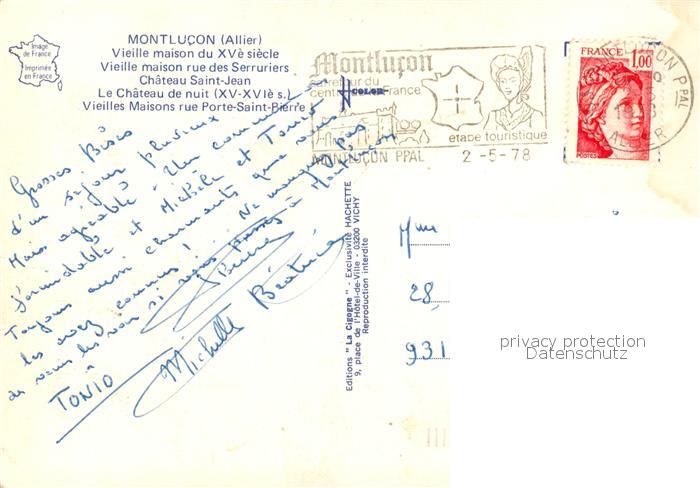 Image
de France
Imprimée
en France
MONTLUÇON (Allier)
Vieille maison du XVè siècle
Vieille maison rue des Serruriers
Château Saint-Jean
Le Château de nuit (XV-XVIè s.)
Vieilles Maisons rue Porte-Saint-Pierre
COLOR
Montluçon
carrefour du
centre France
etape touristique
MONTLUÇON PPAL 2-5-78
FRANCE
1,00
POSTES
PPAL
ALLIER
Grosses Bises
d'un séjour pluvieux
Mais agréable. Un comm
formidable et Michèle et Tonio
Toujours aussi charmants que vous
les avez connus ! Ne manquez pas
de venir les voir si vous passez à Montluçon
Pierre
Michelle Béatrice
TONIO
Editions "La Cigogne" - Exclusivité HACHETTE
9, place de l'Hôtel-de-Ville - 03200 VICHY
Reproduction interdite
Mme
28,
931
privacy protection
Datenschutz